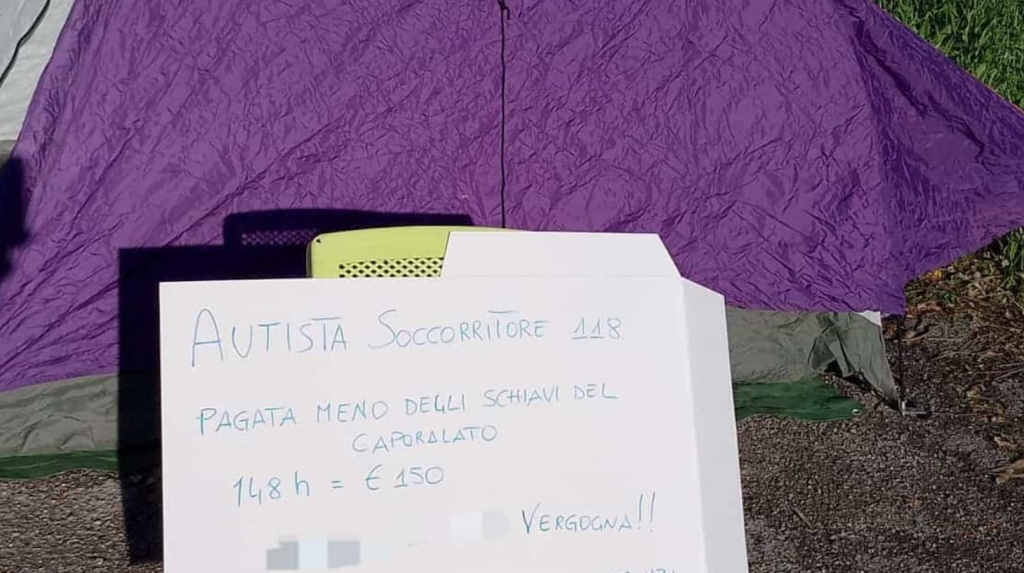 AUTISTA SOCCORRITORE 118
PAGATA MENO DEGLI SCHIAVI DEL
CAPORALATO
148 h = € 150
VERGOGNA!!